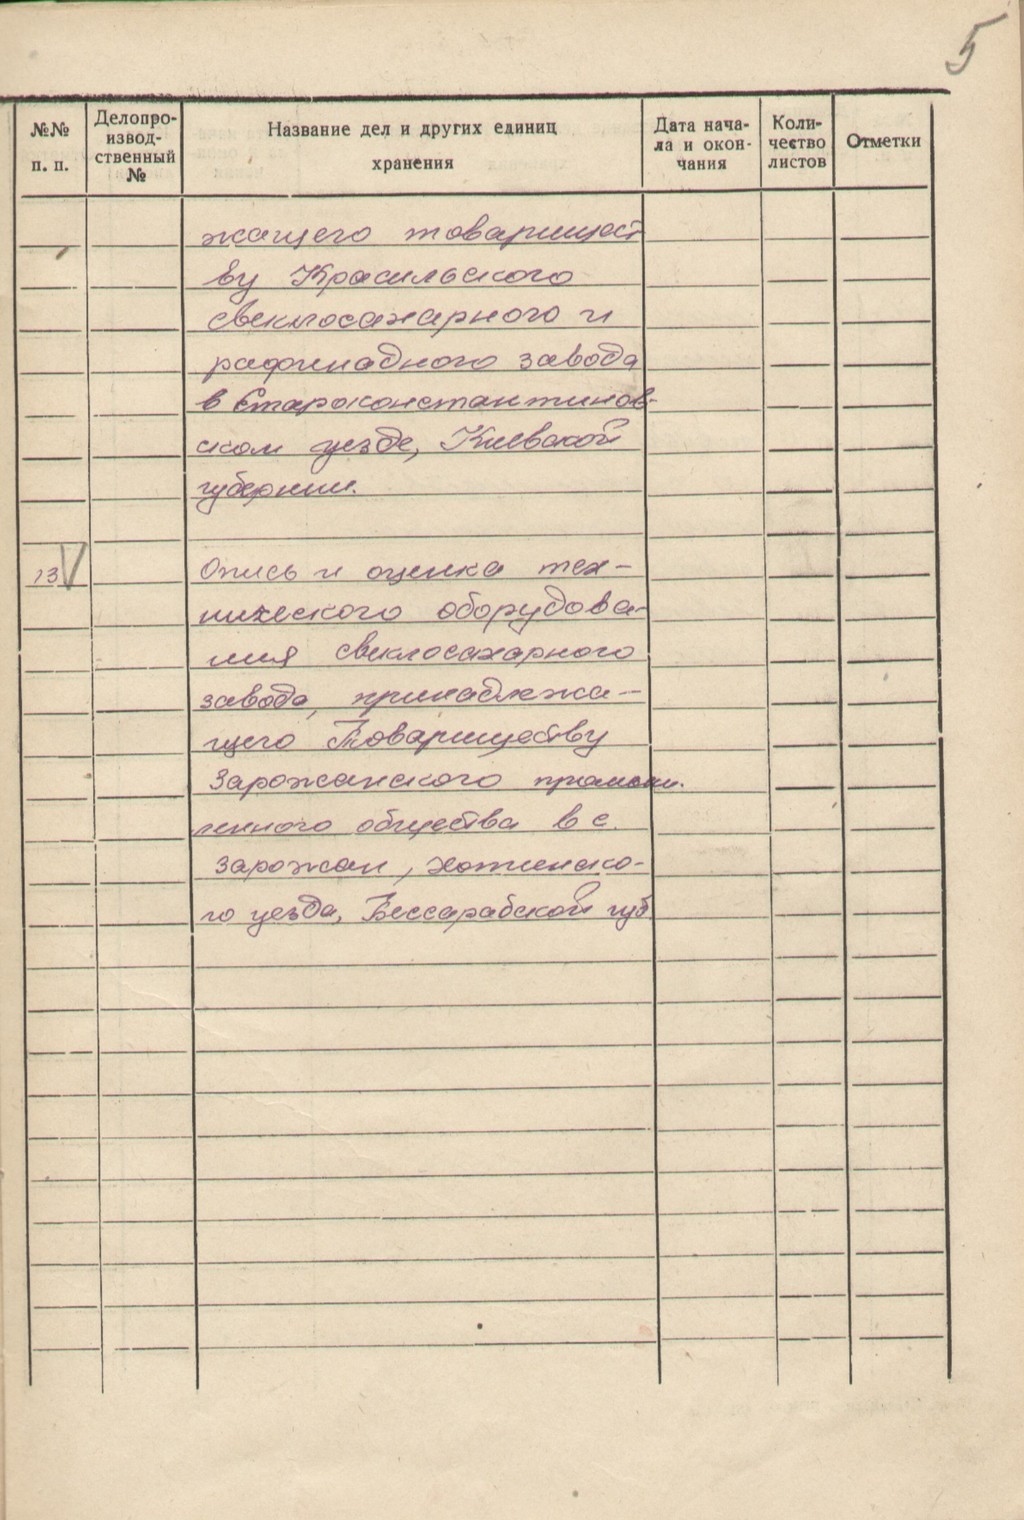 5
№№ п. п.
Делопро-
извод-
ственный
№
Название дел и других единиц
хранения
Дата нача-
ла и окон-
чания
Коли-
чество
листов
Отметки
жащего товарищест
ву Красильского
свеклосахарного и
рафинадного завода
в Староконстантинов-
ском уезде, Киевской
губернии.
13 V
Опись и оценка тех-
нического оборудова-
ния свеклосахарного
завода, принадлежа-
щего Товариществу
Зарожанского промыш.
ленного общества в с.
Зарожан, Хотинско-
го уезда, Бессарабской губ